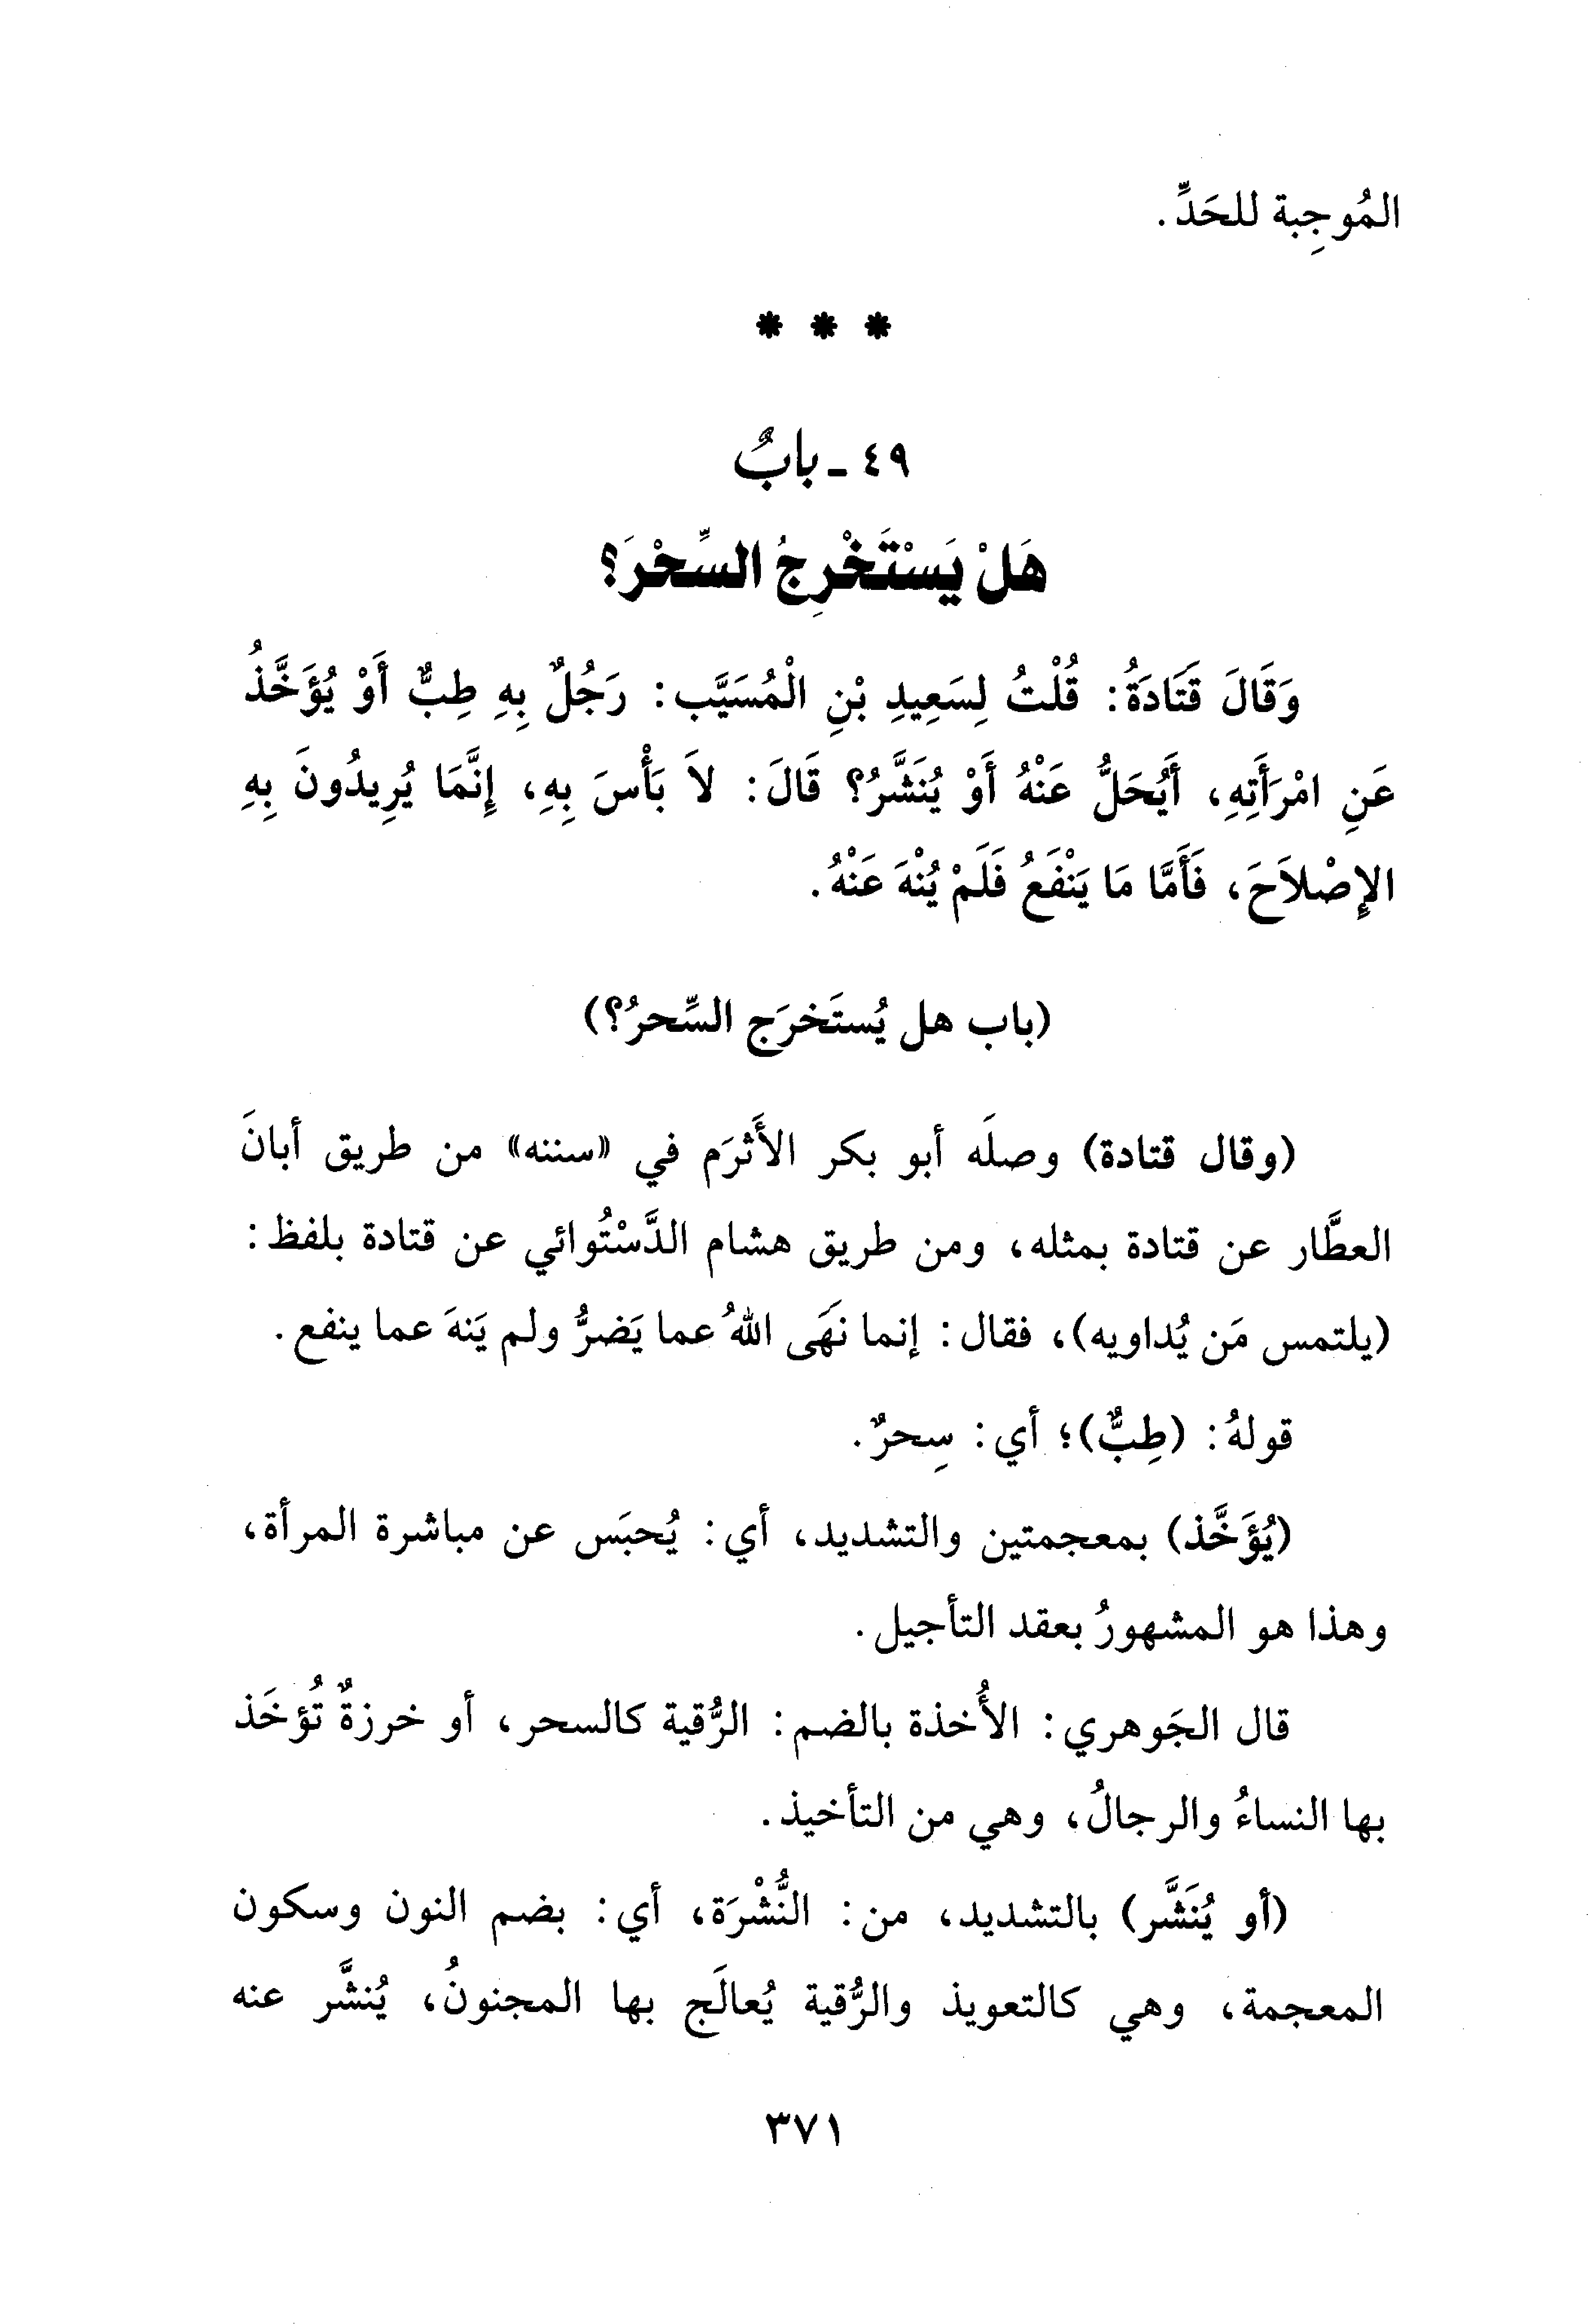 المُوجِبة للحَدِّ.
* * *
٤٩ - بابٌ
هَلْ يَسْتَخْرِجُ السِّحْرَ؟
وَقَالَ قَتَادَةُ: قُلْتُ لِسَعِيدِ بْنِ الْمُسَيَّبِ: رَجُلٌ بِهِ طِبٌّ أَوْ يُؤَخَّذُ
عَنِ امْرَأَتِهِ، أَيُحَلُّ عَنْهُ أَوْ يُنَشَّرُ؟ قَالَ: لاَ بَأْسَ بِهِ، إِنَّمَا يُرِيدُونَ بِهِ
الإِصْلاَحَ، فَأَمَّا مَا يَنْفَعُ فَلَمْ يُنْهَ عَنْهُ.
(باب هل يُستَخرَج السِّحرُ؟)
(وقال قتادة) وصلَه أبو بكر الأَثرَم في «سننه» من طريق أبانَ
العطَّار عن قتادة بمثله، ومن طريق هشام الدَّسْتُوائي عن قتادة بلفظ:
(يلتمس مَن يُداويه)، فقال: إنما نَهَى اللهُ عما يَضرُّ ولم يَنهَ عما ينفع.
قولهُ: (طِبٌّ)؛ أي: سِحرٌ.
(يُؤَخَّذ) بمعجمتين والتشديد، أي: يُحبَس عن مباشرة المرأة،
وهذا هو المشهورُ بعقد التأجيل.
قال الجَوهري: الأُخذة بالضم: الرُّقية كالسحر، أو خرزةٌ تُؤخَذ
بها النساءُ والرجالُ، وهي من التأخيذ.
(أو يُنَشَّر) بالتشديد، من: النُّشْرَة، أي: بضم النون وسكون
المعجمة، وهي كالتعويذ والرُّقية يُعالَج بها المجنونُ، يُنشَّر عنه
٣٧١